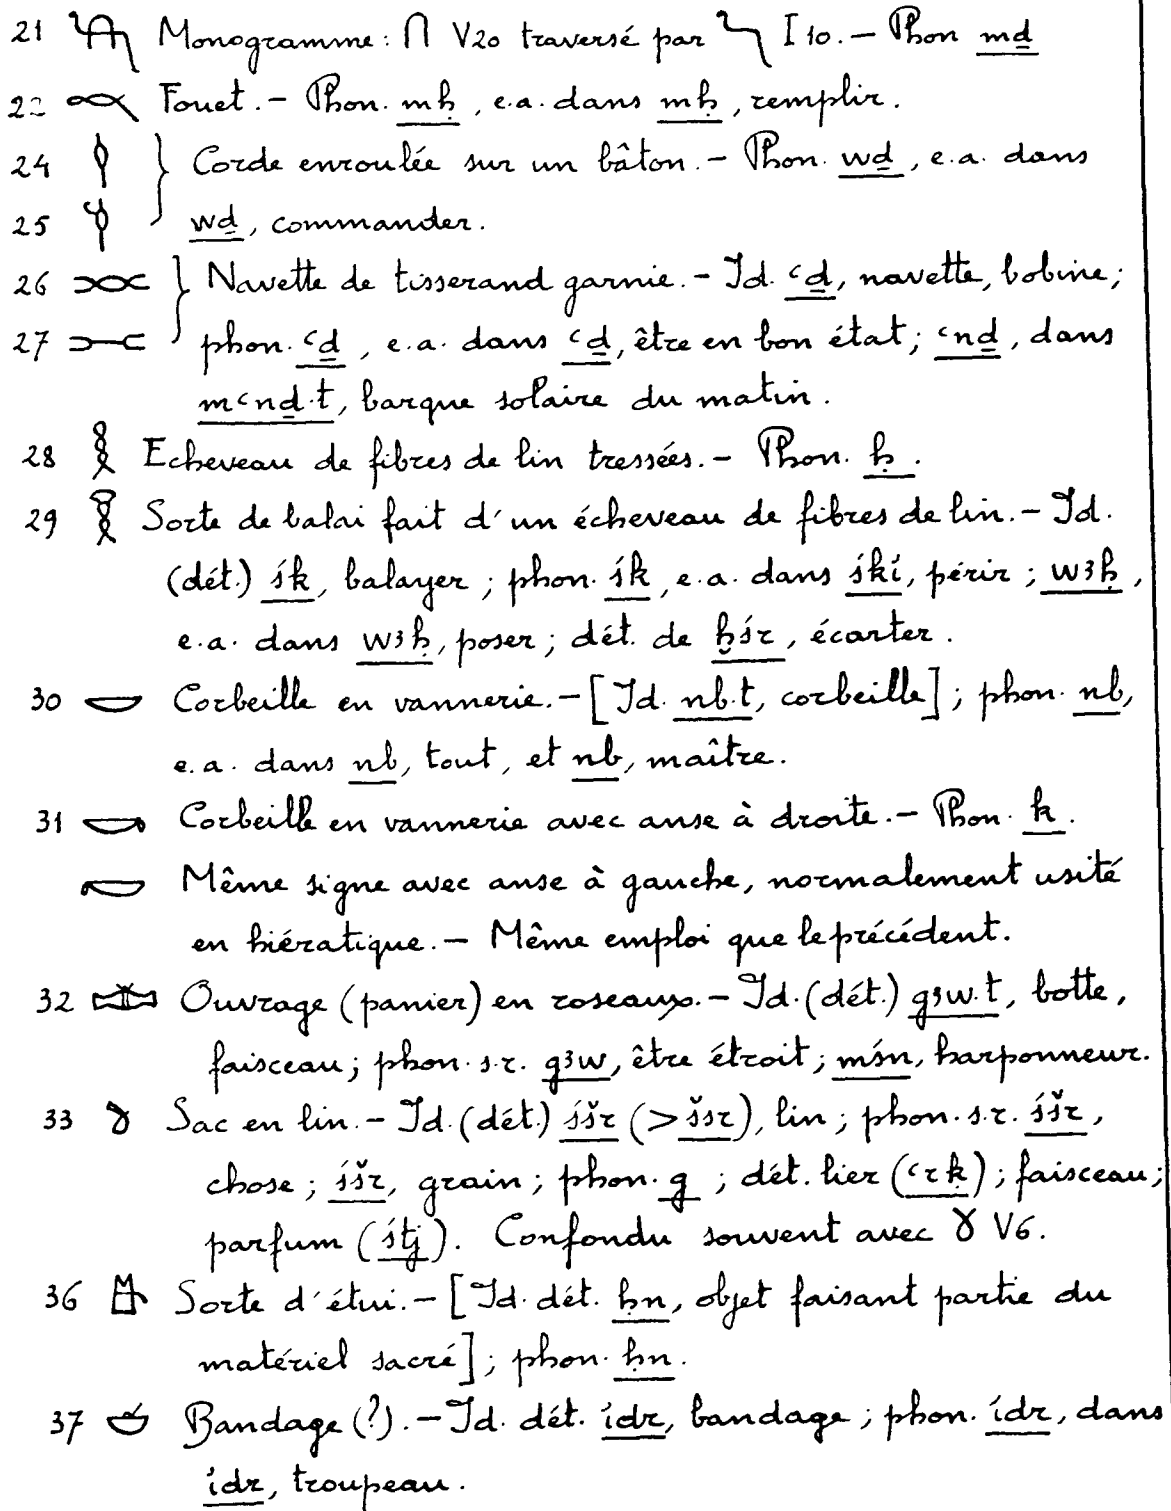 21 𓆕 Monogramme: ∩ V20 traversé par 𓆓 I 10. – Phon mḏ
22 𓎔 Fouet. – Phon. mḥ, e.a. dans mḥ, remplir.
24 𓎗 } Corde enroulée sur un bâton. – Phon. wḏ, e.a. dans
25 𓎘 wḏ, commander.
26 𓎙 } Navette de tisserand garnie. – Id. ꜥḏ, navette, bobine;
27 𓎚 phon. ꜥḏ, e.a. dans ꜥḏ, être en bon état; ꜥnḏ, dans
mꜥnḏ.t, barque solaire du matin.
28 𓎛 Echeveau de fibres de lin tressées. – Phon. ḥ.
29 𓎝 Sorte de balai fait d'un écheveau de fibres de lin. – Id.
(dét.) śk, balayer; phon. śk, e.a. dans śkı͗, périr; wꜣḥ,
e.a. dans wꜣḥ, poser; dét. de ḫśr, écarter.
30 𓎟 Corbeille en vannerie. – [Id. nb.t, corbeille]; phon. nb,
e.a. dans nb, tout, et nb, maître.
31 𓎡 Corbeille en vannerie avec anse à droite. – Phon. k.
𓎢 Même signe avec anse à gauche, normalement usité
en hiératique. – Même emploi que le précédent.
32 𓎣 Ouvrage (panier) en roseaux. – Id. (dét.) gꜣw.t, botte,
faisceau; phon. s.r. gꜣw, être étroit; mśn, harponneur.
33 𓎤 Sac en lin. – Id. (dét.) śšr (> šsr), lin; phon. s.r. śšr,
chose; śšr, grain; phon. g; dét. lier (ꜥrḳ); faisceau;
parfum (śṯj). Confondu souvent avec 𓍱 V6.
36 𓎨 Sorte d'étui. – [Id. dét. ḥn, objet faisant partie du
matériel sacré]; phon. ḥn.
37 𓎩 Bandage (?). – Id. dét. ı͗dr, bandage; phon. ı͗dr, dans
ı͗dr, troupeau.